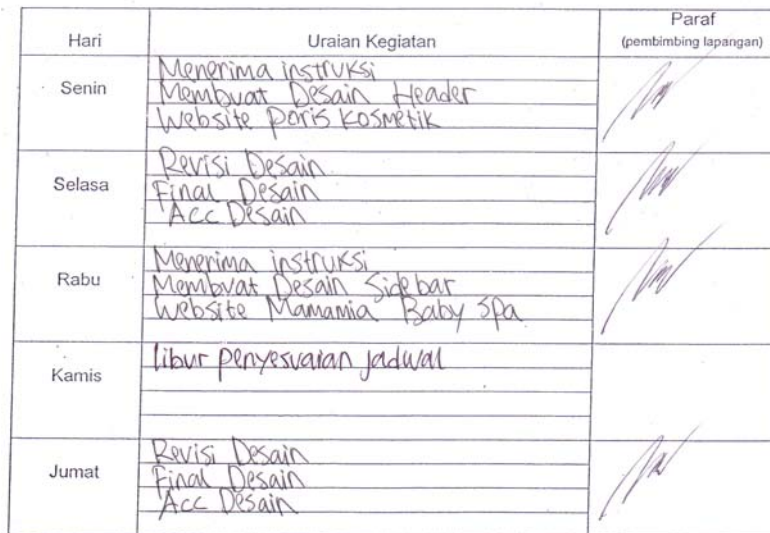 Hari Uraian Kegiatan Paraf
(pembimbing lapangan)
Senin
Menerima instruksi
Membuat Desain Header
Website Poris Kosmetik
Selasa
Revisi Desain
Final Desain
Acc Desain
Rabu
Menerima instruksi
Membuat Desain Sidebar
Website Mamamia Baby Spa
Kamis
libur penyesuaian jadwal
Jumat
Revisi Desain
Final Desain
Acc Desain